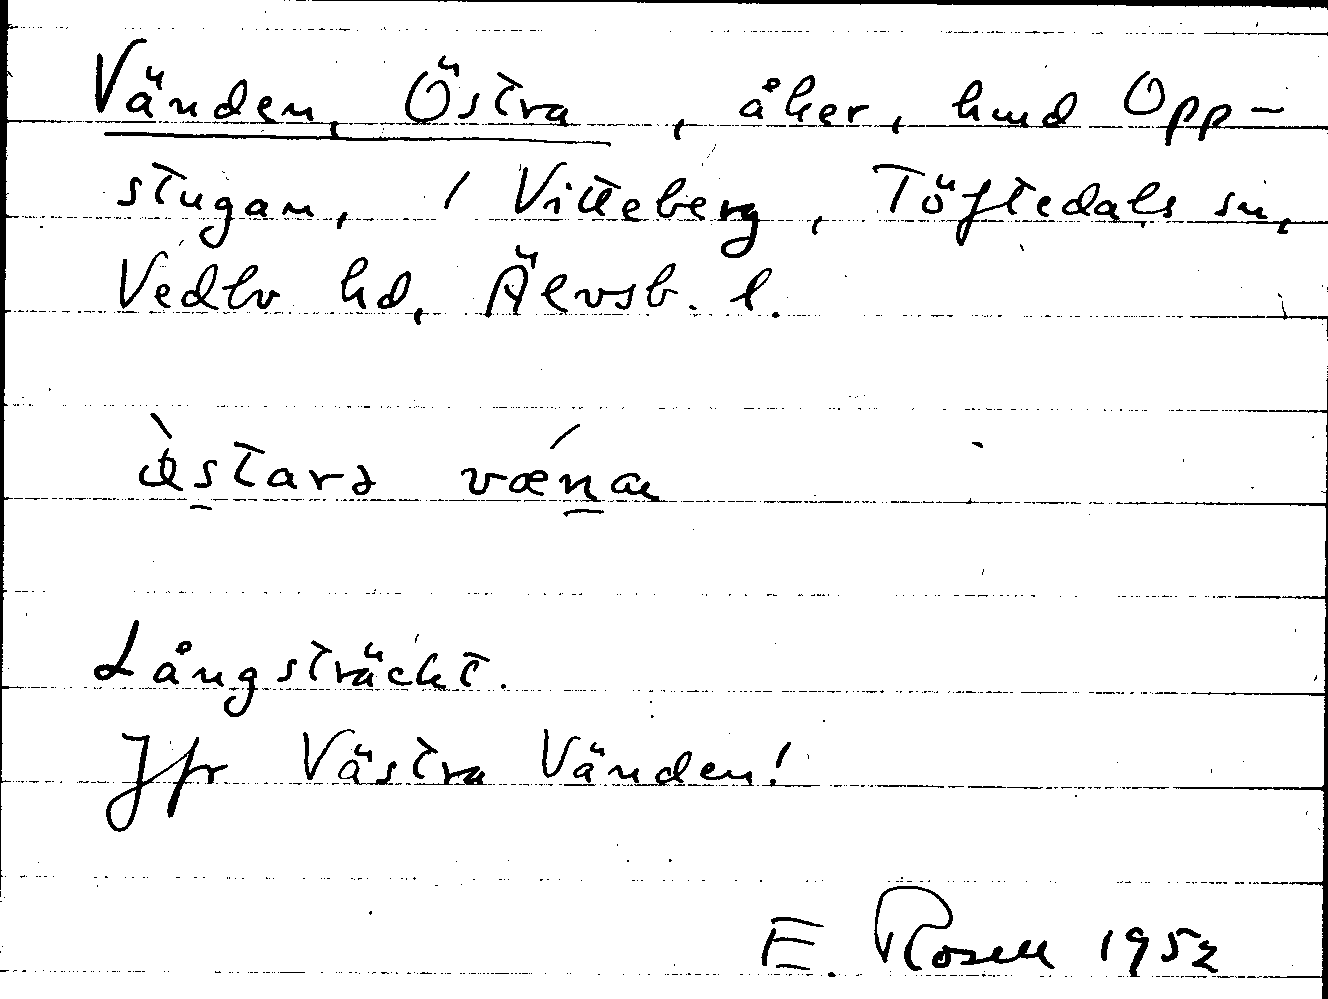 Vänden, Östra, åker, hmd Opp-
stugan, / Vitteberg, Töftedals sn,
Vedbo hd, Älvsb. l.
væna
Långsträckt.
Jfr Västra Vänden!
E. Rosell 1952